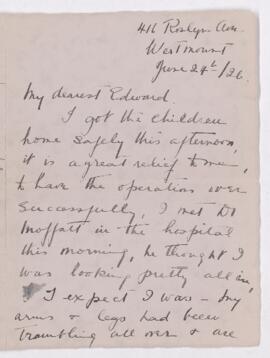 416 Roslyn Ave.
Westmount
June 24th/26.
My dearest Edward.
I got the children
home safely this afternoon,
it is a great relief to me,
to have the operation over
successfully, I met Dr
Moffatt in the hospital
this morning, he thought I
was looking pretty all in,
I expect I was - my
arms & legs had been
trembling all over & are